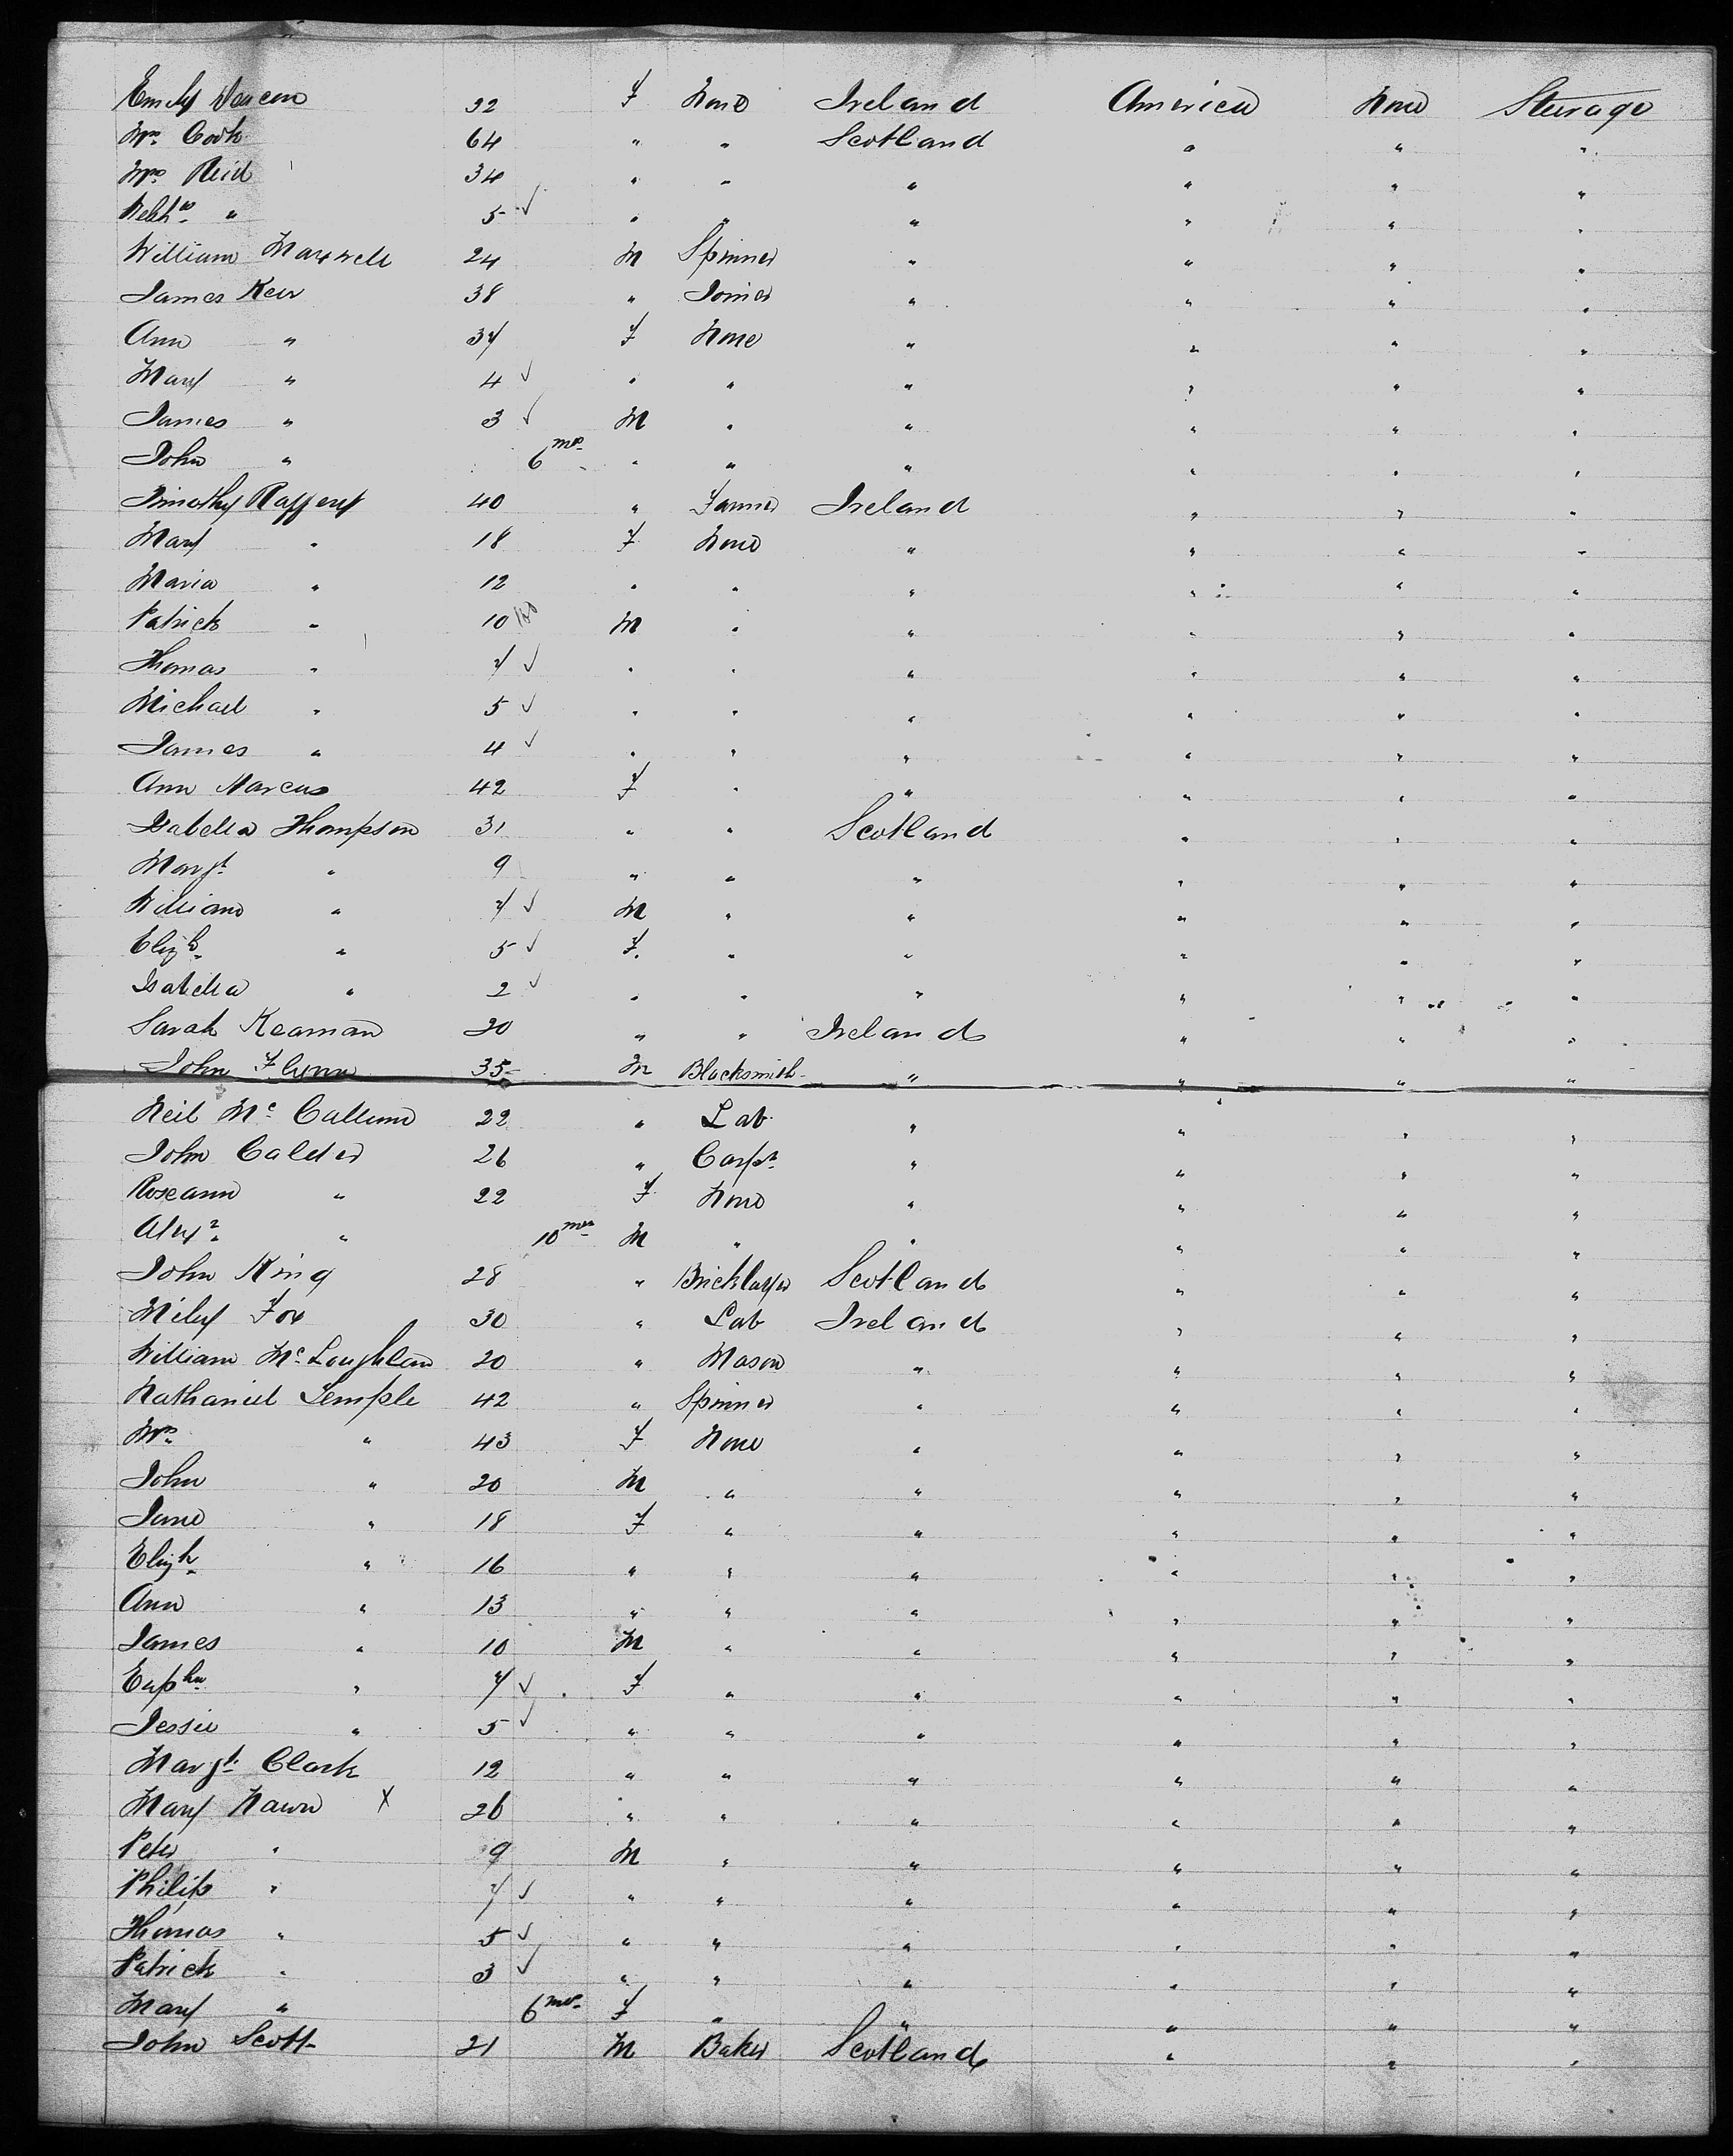 Emily 22 F None Ireland America None Steerage
Mrs Cook 64 " " Scotland " " "
Mrs Reid 34 " " " " " "
" 5 ✓ " " " " " "
William Maxwell 24 M Spinner " " " "
James Keir 38 " Joiner " " " "
Ann " 37 F None " " " "
Mary " 4 ✓ " " " " " "
James " 3 ✓ M " " " " "
John " 6 mos " " " " " "
Timothy Rafferty 40 " Farmer Ireland " " "
Mary " 18 F None " " " "
Maria " 12 " " " " " "
Patrick " 10 M " " " " "
Thomas " 7 ✓ " " " " " "
Michael " 5 ✓ " " " " " "
James " 4 ✓ " " " " " "
Ann Marcus 42 F " " " " "
Isabella Thompson 31 " " Scotland " " "
Margt " 9 " " " " " "
William " 7 ✓ M " " " " "
Elizh " 5 ✓ F " " " " "
Isabella " 2 ✓ " " " " " "
Sarah Keaman 20 " " Ireland " " "
John Flynn 35 M Blacksmith " " " "
Neil Mc Callum 22 " Lab " " " "
John Calder 26 " Carpr " " " "
Roseann " 22 F None " " " "
Alexr " 10 mos M " " " " "
John King 28 " Bricklayer Scotland " " "
Miley Fox 30 " Lab Ireland " " "
William Mc Loughlan 20 " Mason " " " "
Nathaniel Temple 42 " Spinner " " " "
Mrs " 43 F None " " " "
John " 20 M " " " " "
Jane " 18 F " " " " "
Elizh " 16 " " " " " "
Ann " 13 " " " " " "
James " 10 M " " " " "
Euphn " 7 ✓ F " " " " "
Jessie " 5 ✓ " " " " " "
Margt Clark 12 " " " " " "
Mary Nawn X 26 " " " " " "
Peter " 9 M " " " " "
Philip " 7 ✓ " " " " " "
Thomas " 5 ✓ " " " " " "
Patrick " 3 ✓ " " " " " "
Mary " 6 mos F " " " " "
John Scott 21 M Baker Scotland " " "